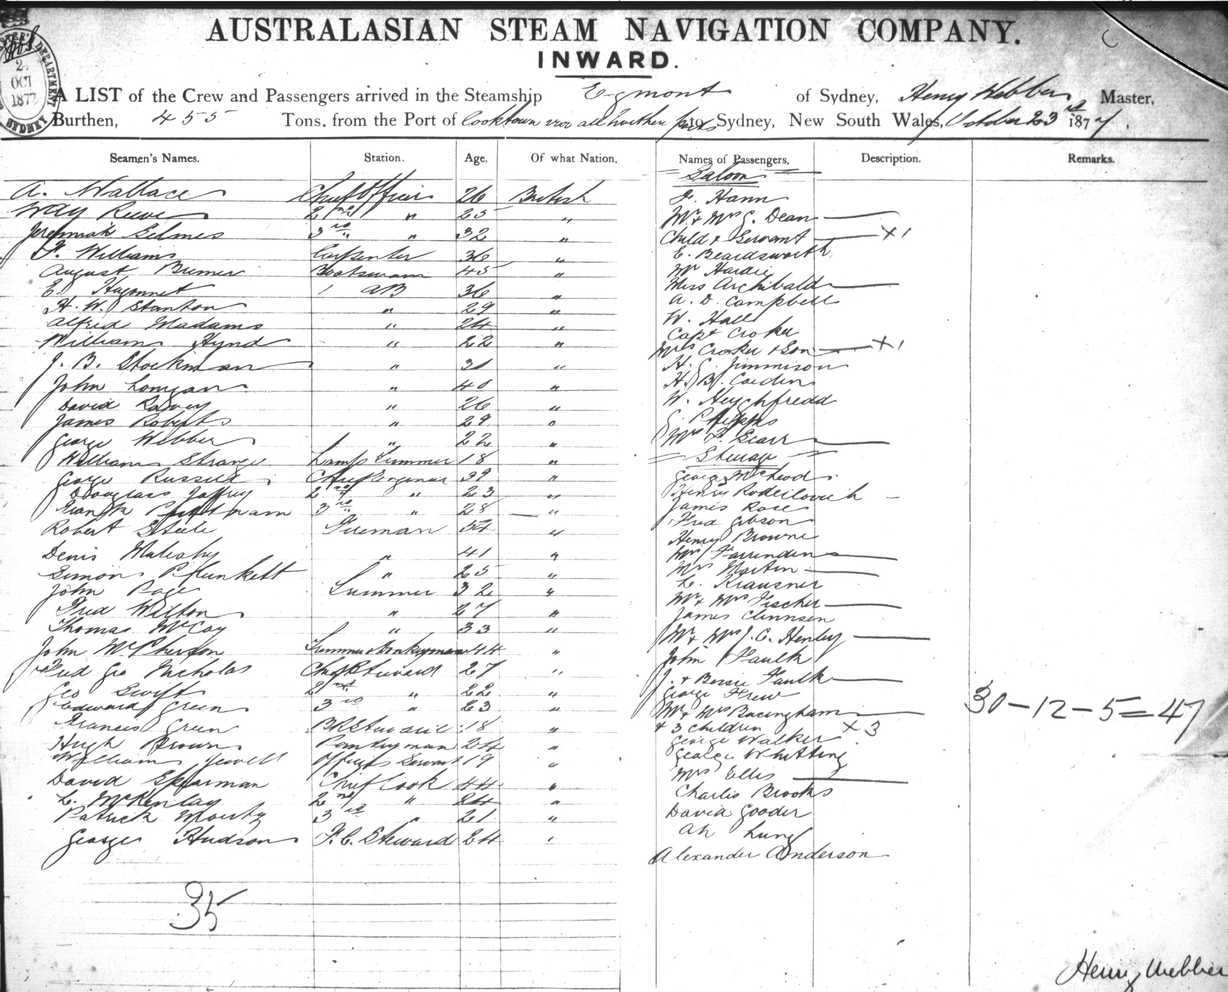 AUSTRALASIAN STEAM NAVIGATION COMPANY.
INWARD.
2
OCT
1877
SYDNEY
A LIST of the Crew and Passengers arrived in the Steamship Egmont of Sydney, Henry Webber Master,
Burthen, 455 Tons, from the Port of Cooktown to Sydney, New South Wales, October 23rd 1877.
Seamen's Names. Station. Age. Of what Nation.
A. Wallace Chief Officer 26 British
Way Reeve 2nd " 25 "
Jeremiah Gelmes 3rd " 32 "
F. Williams Carpenter 36 "
August Bremer Boatswain 45 "
E. AB 36 "
H. W. Stanton " 29 "
Alfred Madams " 24 "
William Hynd " 22 "
J. B. Stockman " 30 "
John " 40 "
David " 26 "
James Roberts " 29 "
George Webber " 22 "
William Strange Lamp Trimmer 18 "
George Russell Chief Engineer 39 "
Douglass 2nd " 23 "
3rd " 28 "
Robert Steele Fireman 34 "
Denis " 41 "
Simon Plunkett " 25 "
John Page 32 "
Fred Wilton " 27 "
Thomas McCoy " 33 "
John McPherson 44 "
Fred Geo Nicholas Chief Steward 27 "
Geo Swift 2nd " 22 "
Edward Green 3rd " 23 "
Francis Green 18 "
Hugh Brown Pantryman 24 "
William Jewell Officers Servant 19 "
David Spearman Chief Cook 44 "
L. McKenlay 2nd " 24 "
Patrick 3rd " 21 "
George Hudson F. C. Steward 24 "
35
Names of Passengers. Description. Remarks.
Saloon
F. Hann
Mr & Mrs G. Dean
Child & Servant X 1
E. Beardsworth
Mr Hardie
Miss Archibald
A. D. Campbell
W. Hall
Capt Croker
Mrs Croker & Son X 1
H. G. Jimmison
H. B. Carden
W. Heychfredd
Mrs F. Gearr
Steerage
George McLeod
Henry
James Rose
Fred Gibson
Henry Browne
Mrs Farrenden
Mrs Martin
L. Krausner
Mr & Mrs Fischer
James
Mr & Mrs J. C. Henley
John Faulk
J. & Bessie Faulk
George Frew
Mr & Mrs Bucingham
& 3 Children X 3
George Walker
George Whitting
Mrs Ellis
Charlie Brooks
David Gooder
Ah Lung
Alexander Anderson
30-12-5=47
Henry Webber